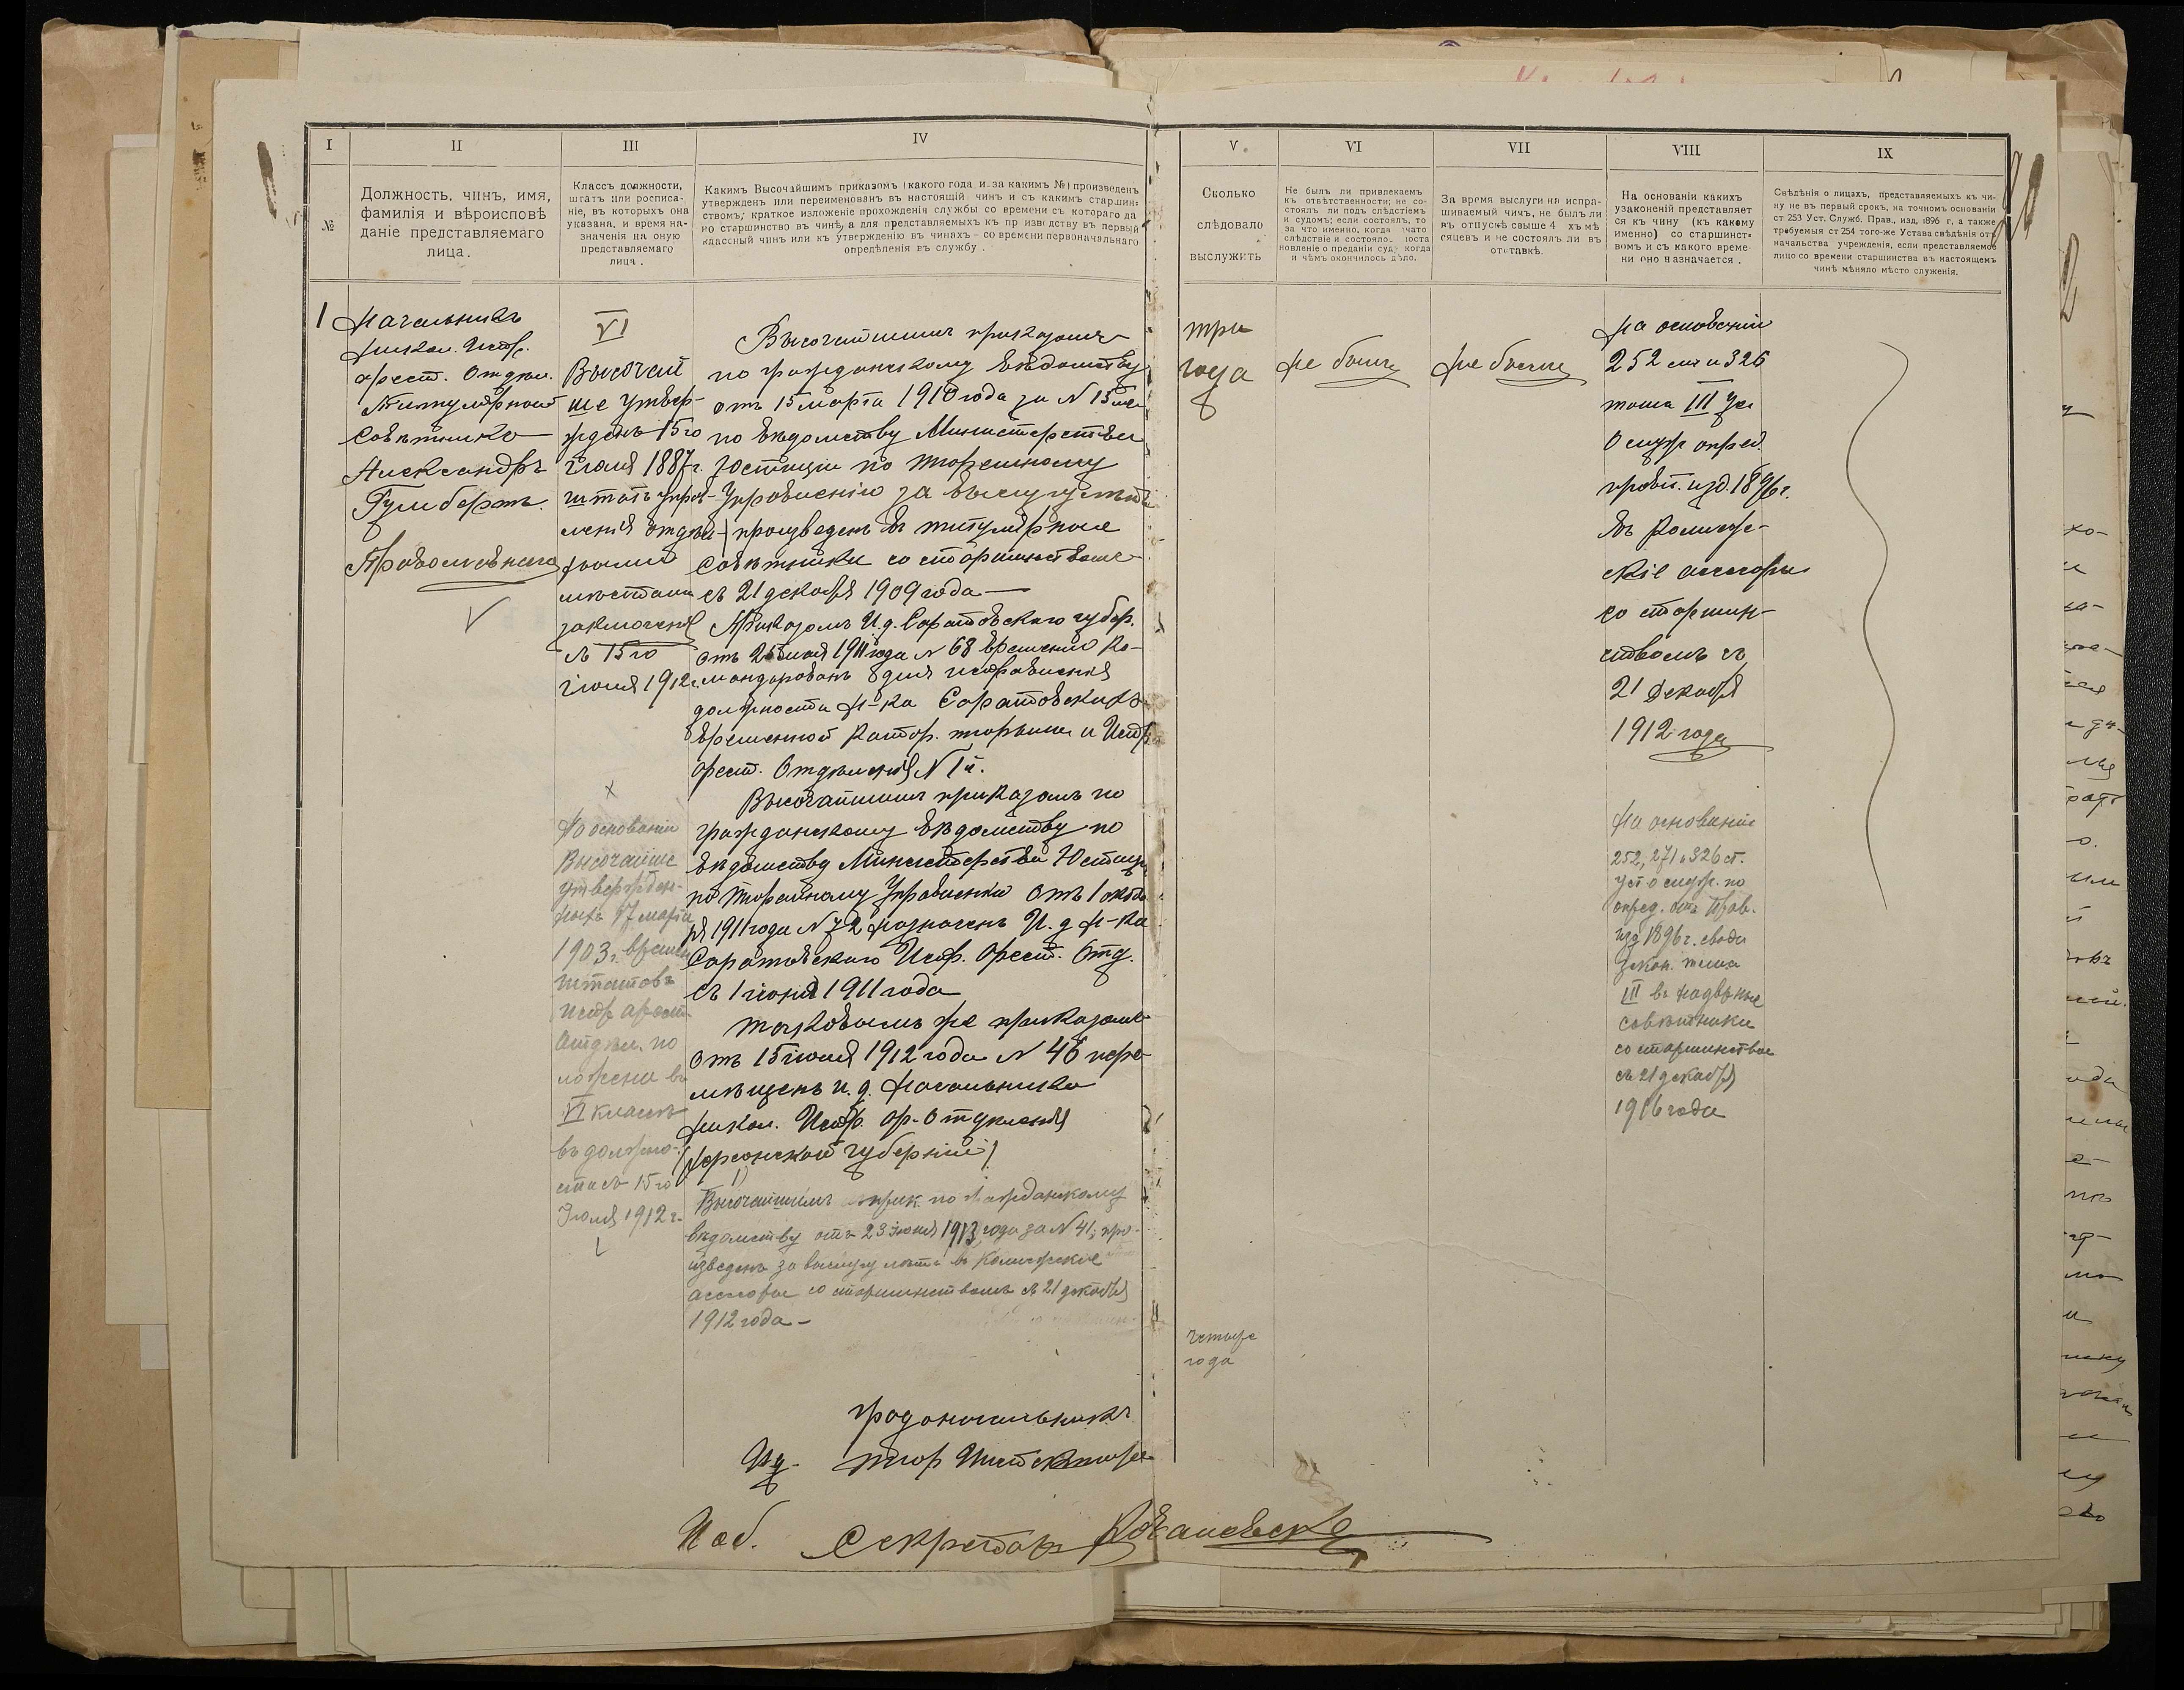 I
II
III
IV
V
VI
VII
VIII
IX
№
Должность, чинъ, имя,
фамилія и вѣроисповѣ
даніе представляемаго
лица.
Классъ должности,
штатъ или росписа-
ніе, въ которыхъ она
указана, и время на-
значенія на оную
представляемаго
лица.
Какимъ Высочайшимъ приказомъ (какого года и за какимъ №) произведенъ
утвержденъ или переименованъ въ настоящій чинъ и съ какимъ старшин-
ствомъ; краткое изложеніе прохожденія службы со времени съ котораго да
но старшинство въ чинѣ, а для представляемыхъ къ производству въ первый
классный чинъ или къ утвержденію въ чинахъ - со времени первоначальнаго
опредѣленія въ службу.
Сколько
слѣдовало
выслужить
Не былъ ли привлекаемъ
къ отвѣтственности; не со-
стоялъ ли подъ слѣдствіемъ
и судомъ; если состоялъ, то
за что именно, когда чато
слѣдствіе и состояло. поста
новленіе о преданіи суду когда
и чѣмъ окончилось дѣло.
За время выслуги на испра-
шиваемый чинъ, не былъ ли
въ отпускѣ свыше 4 хъ мѣ
сяцевъ и не состоялъ ли въ
отставкѣ.
На основаніи какихъ
узаконеній представляет
ся къ чину (къ какому
именно) со старшинст-
вомъ и съ какого време-
ни оно назначается.
Свѣдѣнія о лицахъ, представляемыхъ къ чи-
ну не въ первый срокъ, на точномъ основаніи
ст 253 Уст. Служб. Прав., изд. 1896 г., а также
требуемыя ст 254 того-же Устава свѣдѣнія отъ
начальства учрежденія, если представляемое
лицо со времени старшинства въ настоящемъ
чинѣ мѣняло мѣсто служенія.
1 Начальникъ
Никол. Испр.
арест. Отдѣл.
Титулярный
Совѣтникъ
Александръ
Гумбертъ.
Православнаго
VI
Высочай
ше утвер-
жденъ 15го
іюля 1887г.
штатъ управ-
ленія отдѣл-
ными
мѣстами
заключенія
съ 15го
іюля 1912г.
На основаніи
Высочайше
утвержден-
ныхъ 17 марта
1903г. времен
штатовъ
испр арест
отдѣл. по
ложена въ
VI классъ
въ должно-
сти съ 15го
Іюля 1912 г.
Высочайшимъ приказомъ
по гражданскому вѣдомству
отъ 15 марта 1910 года за N 15
по вѣдомству Министерства
Юстиціи по тюремному
Управленію за выслугу лѣтъ
произведенъ въ титулярные
Совѣтники со старшинствомъ
съ 21 декабря 1909 года
Приказомъ И.д. Саратовскаго губер.
отъ 25 мая 1911 года N 68 временно ко-
мандированъ для исправленія
должности Н-ка Саратовскихъ
временной катор. тюрьмы и Испр
арест. Отдѣленія N 1й.
Высочайшимъ приказомъ по
гражданскому вѣдомству по
вѣдомству Министерства Юстиціи
по тюремному Управленію отъ 1 октяб
ря 1911 года N 72 назначенъ И. д. Н-ка
Саратовскаго Испр. Арест. Отд.
съ 1 іюня 1911 года
таковымъ же приказомъ
отъ 15 іюля 1912 года N 46 пере-
мѣщенъ и. д. Начальника
Никол. Испр. ар. Отдѣленія
(Херсонской губерніи)
Высочайшимъ прик. по гражданскому
вѣдомству отъ 23 іюня 1913 года за N 41, про-
изведенъ за выслугу лѣтъ въ Коллежскіе
ассесоры со старшинствомъ съ 21 декабря
1912 года -
три
года
четыре
года
Не былъ
Не былъ
На основаніи
252 ст и 326
тома III Уст
О служ опред.
правит. изд. 1896 г.
Въ Коллеж-
скіе ассесоры
со старшин-
ствомъ съ
21 Декабря
1912 года
На основаніи
252, 271 и 326 ст.
уст о служ. по
опред. отъ Прав.
изд 1896 г. свода
Закон. тома
III въ надворные
совѣтники
со старшинством
съ 21 декабря
1916 года
Градоначальникъ
И.д. Тюр Инспектора
И об. Секретаря